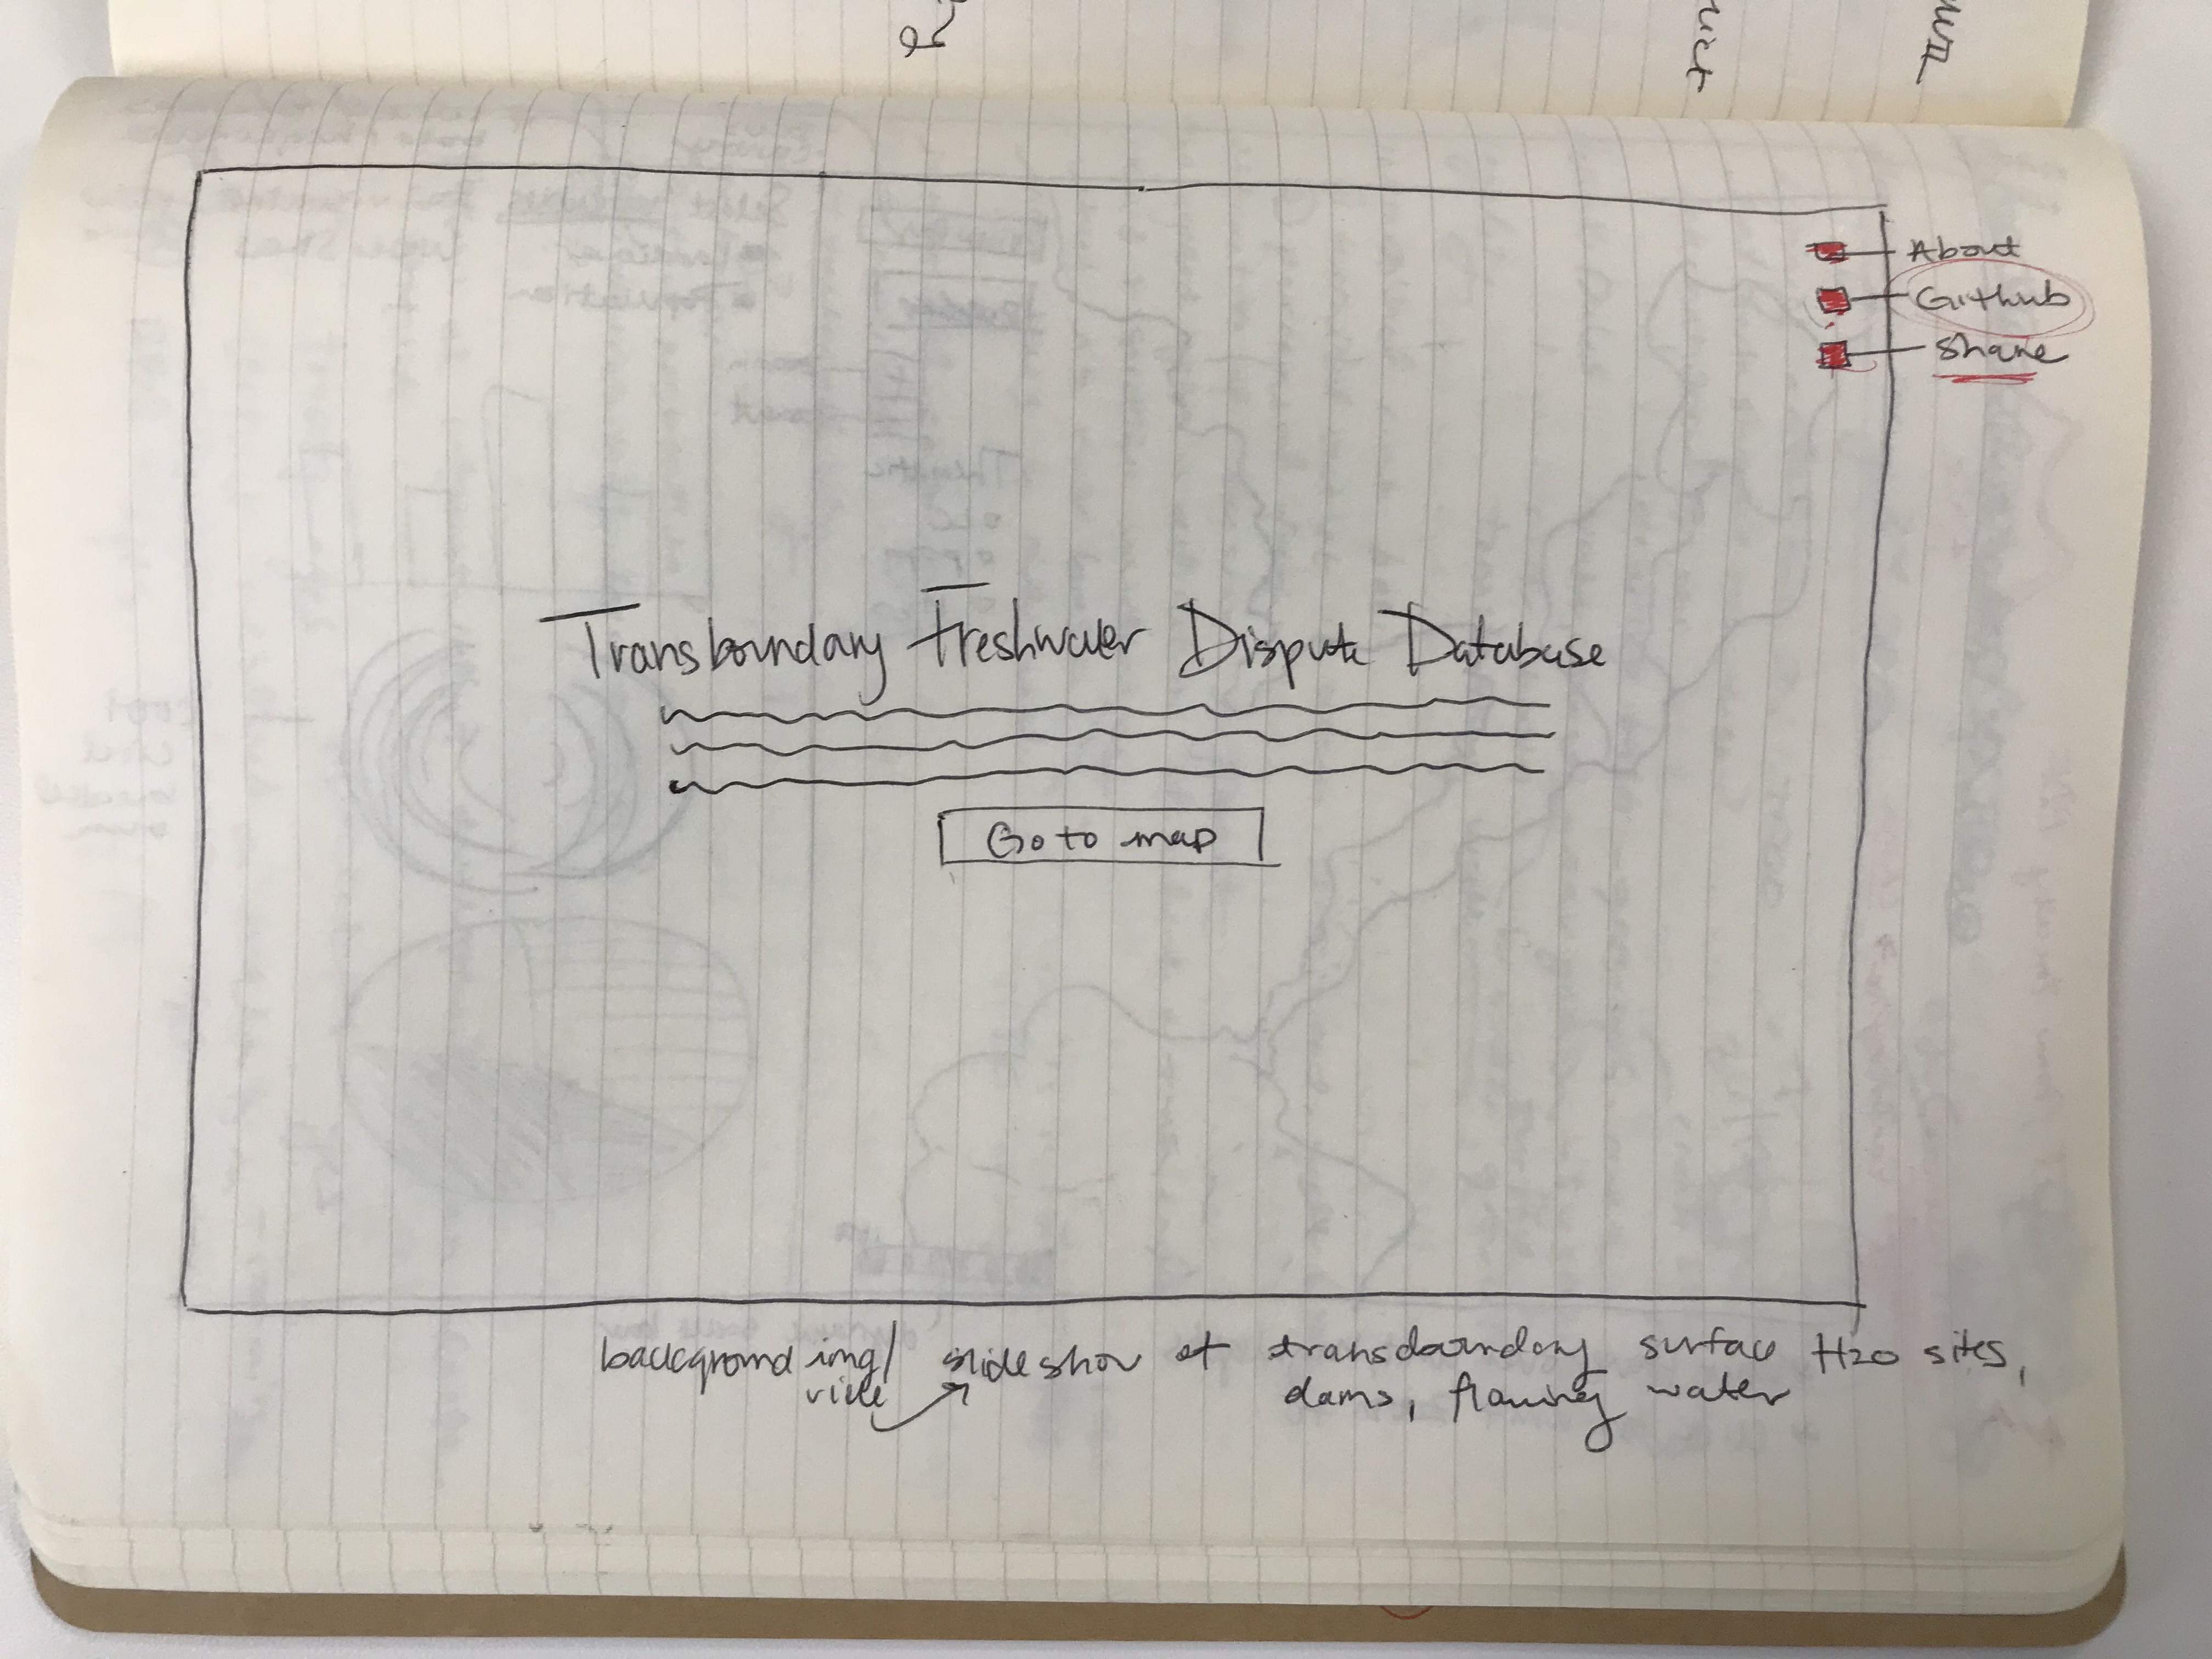 About
Github
Share
Transboundary Freshwater Dispute Database
Go to map
background img/ slideshow of transboundary surface H2O sites,
dams, flowing water